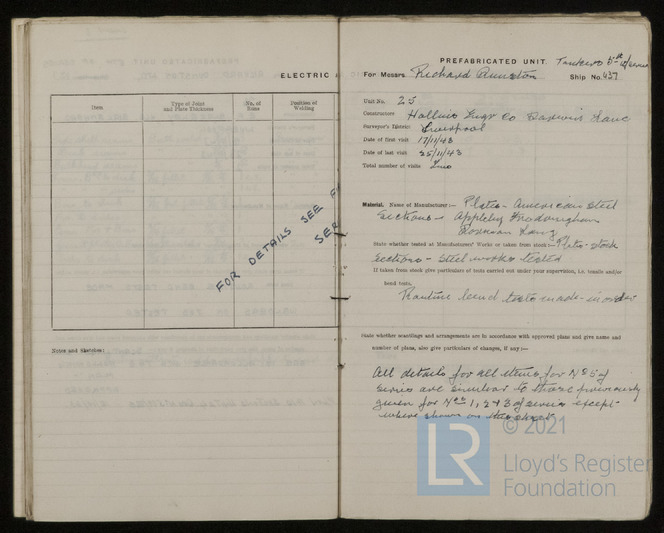 ELECTRIC
Item
Type of Joint and Plate Thickness
No. of Runs
Position of Welding
FOR DETAILS SEE
SER
Notes and Sketches:
PREFABRICATED UNIT.
For Messrs. Richard Dunston Ship No. 437
Unit No. 25
Constructors Hollins Engr Co Darwin Lane
Surveyor's District Liverpool
Date of first visit 17/11/43
Date of last visit 25/11/43
Total number of visits Two
Material. Name of Manufacturer:- Plates - American Steel
Sections - Appleby Frodingham
Dorman Long
State whether tested at Manufacturers' Works or taken from stock:- Plates - stock
Sections - Steel works tested
If taken from stock give particulars of tests carried out under your supervision, i.e. tensile and/or
bend tests.
Routine bend tests made - in order
State whether scantlings and arrangements are in accordance with approved plans and give name and
number of plans, also give particulars of changes, if any:-
All details for all items for No 5 of
series are similar to those previously
given for Nos 1, 2 & 3 of series except
where shown on this sheet
LR
© 2021
Lloyd's Register
Foundation